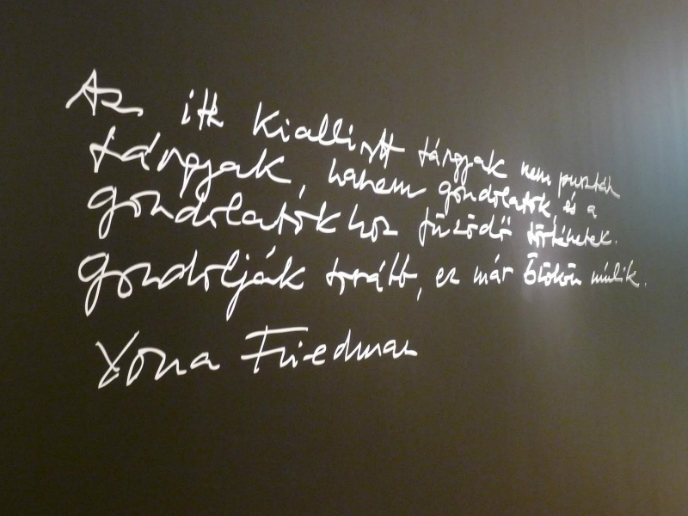 Az itt kiállított tárgyak nem pusztán
tárgyak, hanem gondolatok, és a
gondolatokhoz fűződő történetek.
Gondolják tovább, ez már Önökön múlik.
Yona Friedman